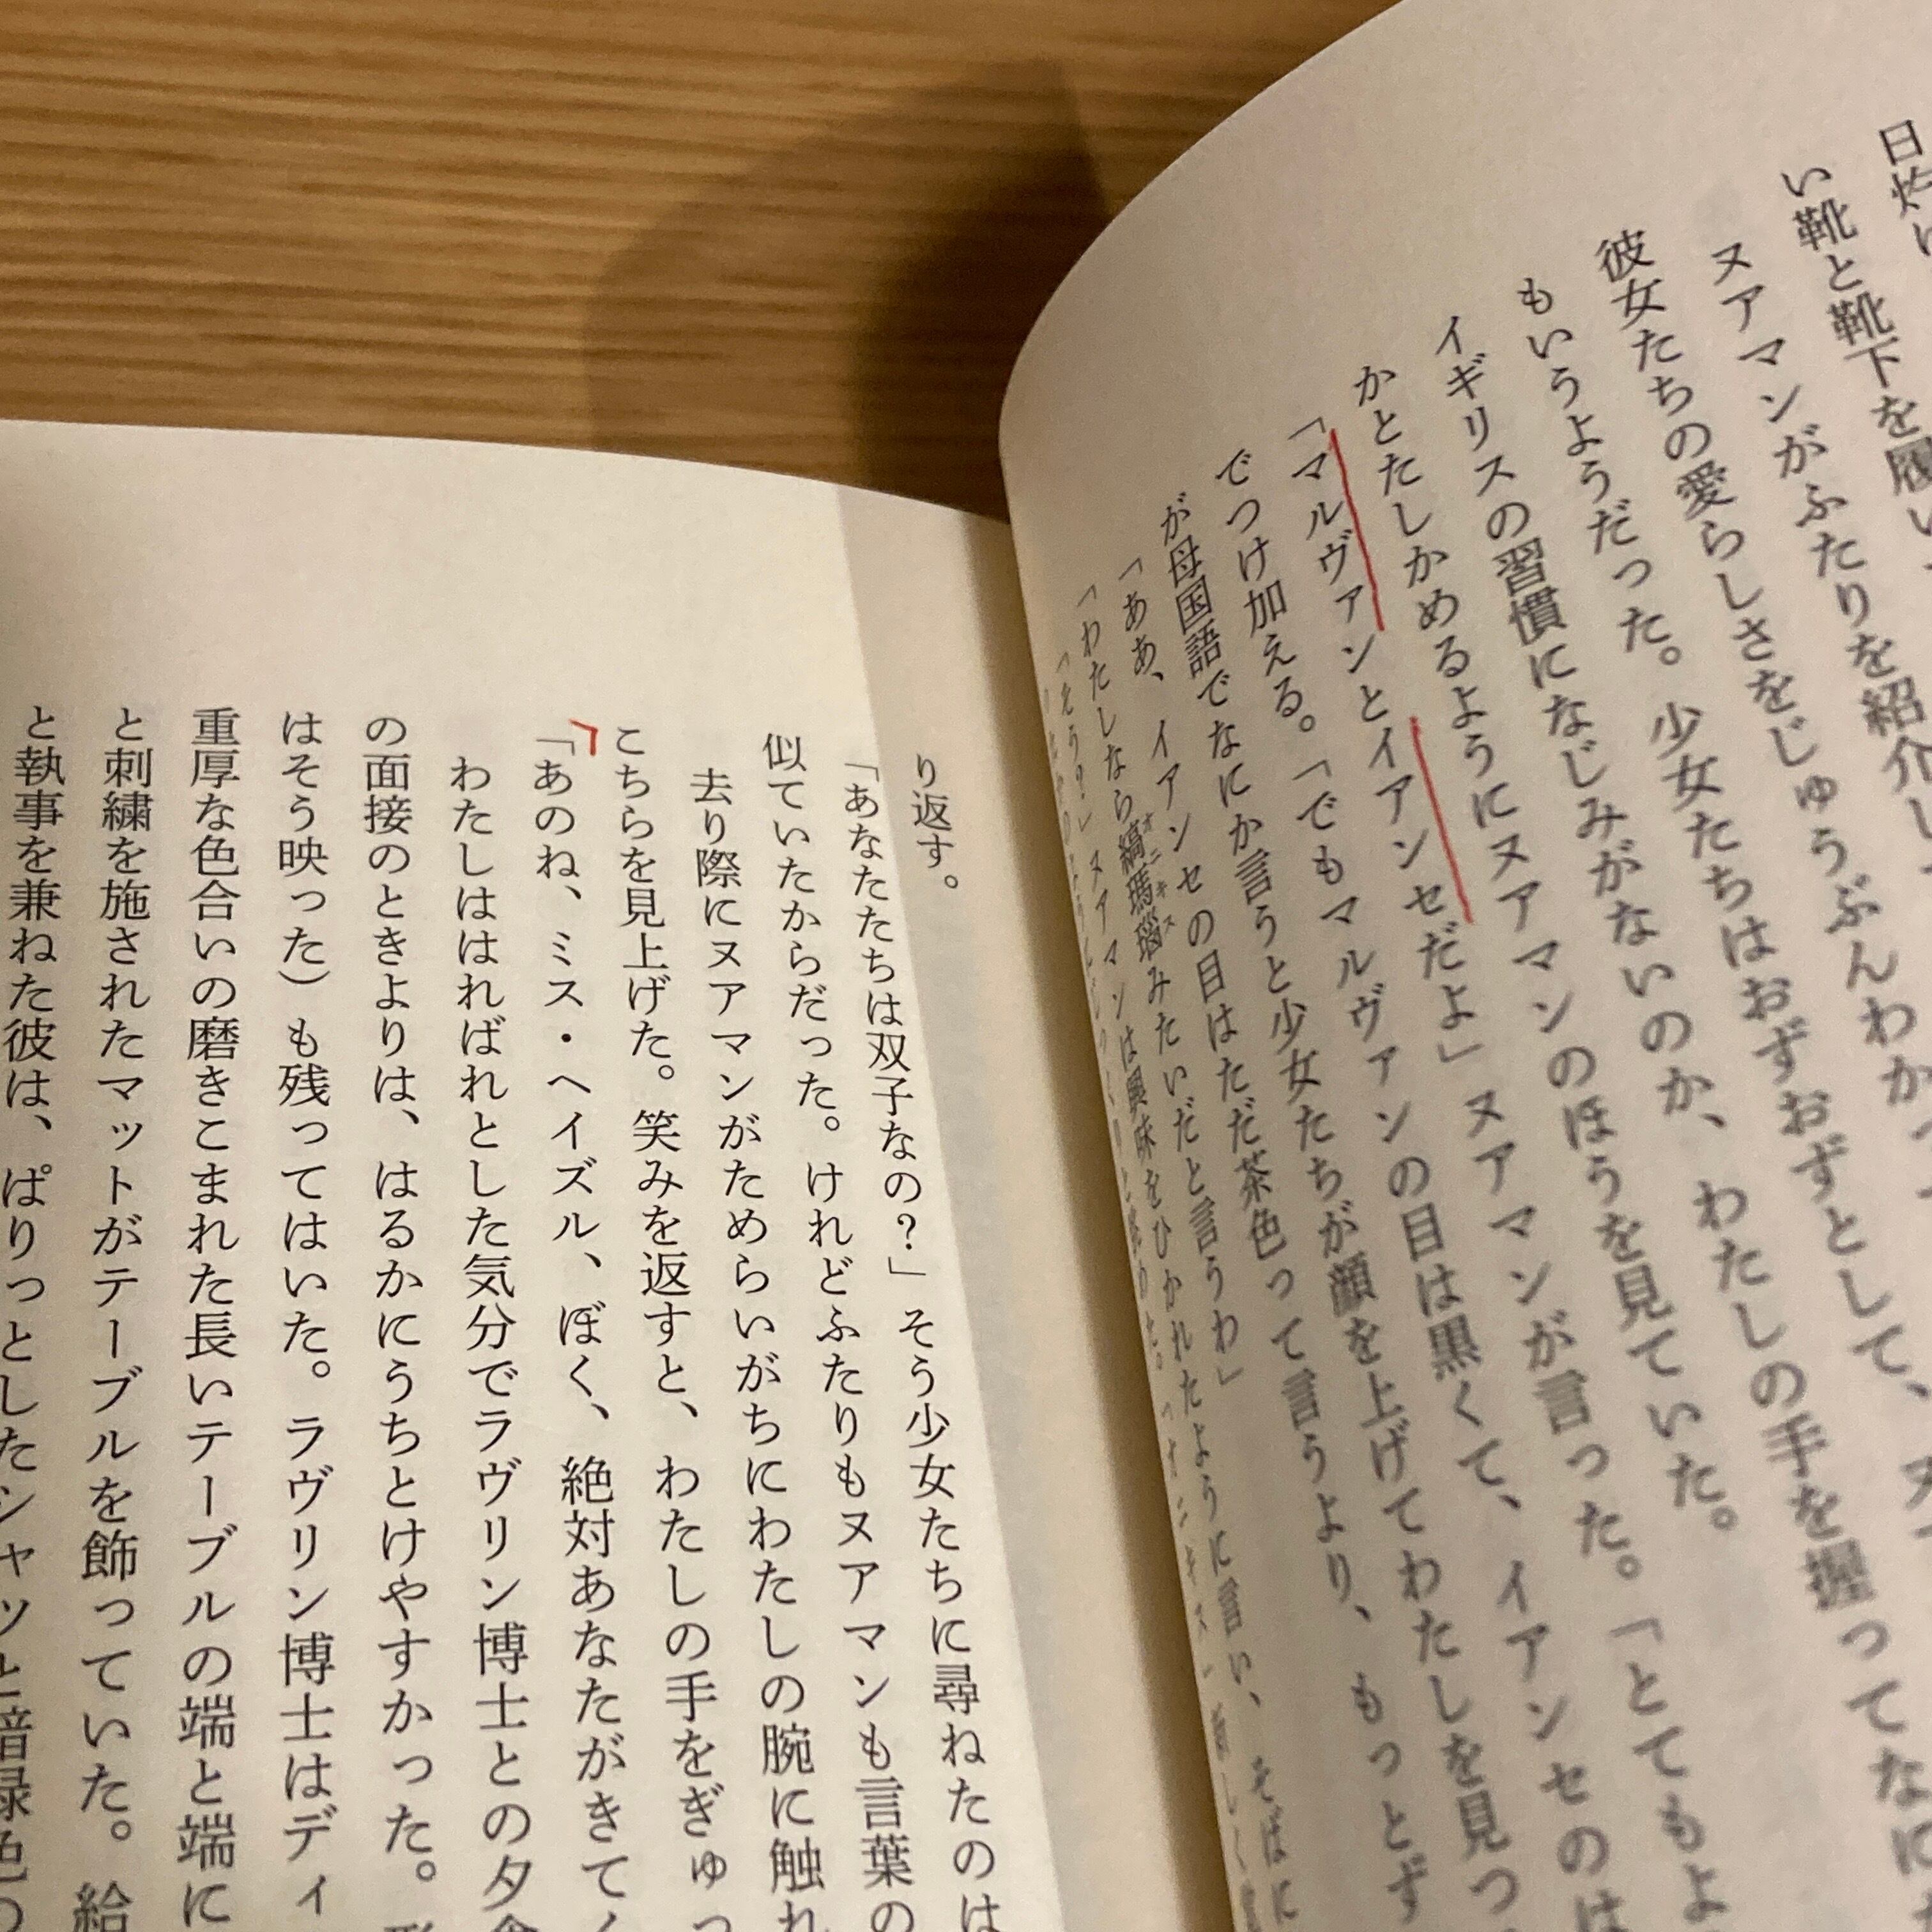 日灼け
い靴と靴下を履い
ヌアマンがふたりを紹介し
彼女たちの愛らしさをじゅうぶんわかっ
もいうようだった。少女たちはおずおずとして、ヌ
イギリスの習慣になじみがないのか、わたしの手を握ってなに
かとたしかめるようにヌアマンのほうを見ていた。
「マルヴァンとイアンセだよ」ヌアマンが言った。「とてもよ
でつけ加える。「でもマルヴァンの目は黒くて、イアンセのは
が母国語でなにか言うと少女たちが顔を上げてわたしを見つ
「ああ、イアンセの目はただ茶色って言うより、もっとず
「わたしなら縞瑪瑙みたいだと言うわ」
オニキス
「そう？」ヌアマンは興味をひかれたように言い、そばに
り返す。
「あなたたちは双子なの？」そう少女たちに尋ねたのは
似ていたからだった。けれどふたりもヌアマンも言葉の
去り際にヌアマンがためらいがちにわたしの腕に触れ
こちらを見上げた。笑みを返すと、わたしの手をぎゅっ
「あのね、ミス・ヘイズル、ぼく、絶対あなたがきてく
わたしははればれとした気分でラヴリン博士との夕食
の面接のときよりは、はるかにうちとけやすかった。
はそう映った）も残ってはいた。ラヴリン博士はディ
重厚な色合いの磨きこまれた長いテーブルの端と端に
と刺繍を施されたマットがテーブルを飾っていた。給
と執事を兼ねた彼は、ぱりっとしたシャツと暗緑色の